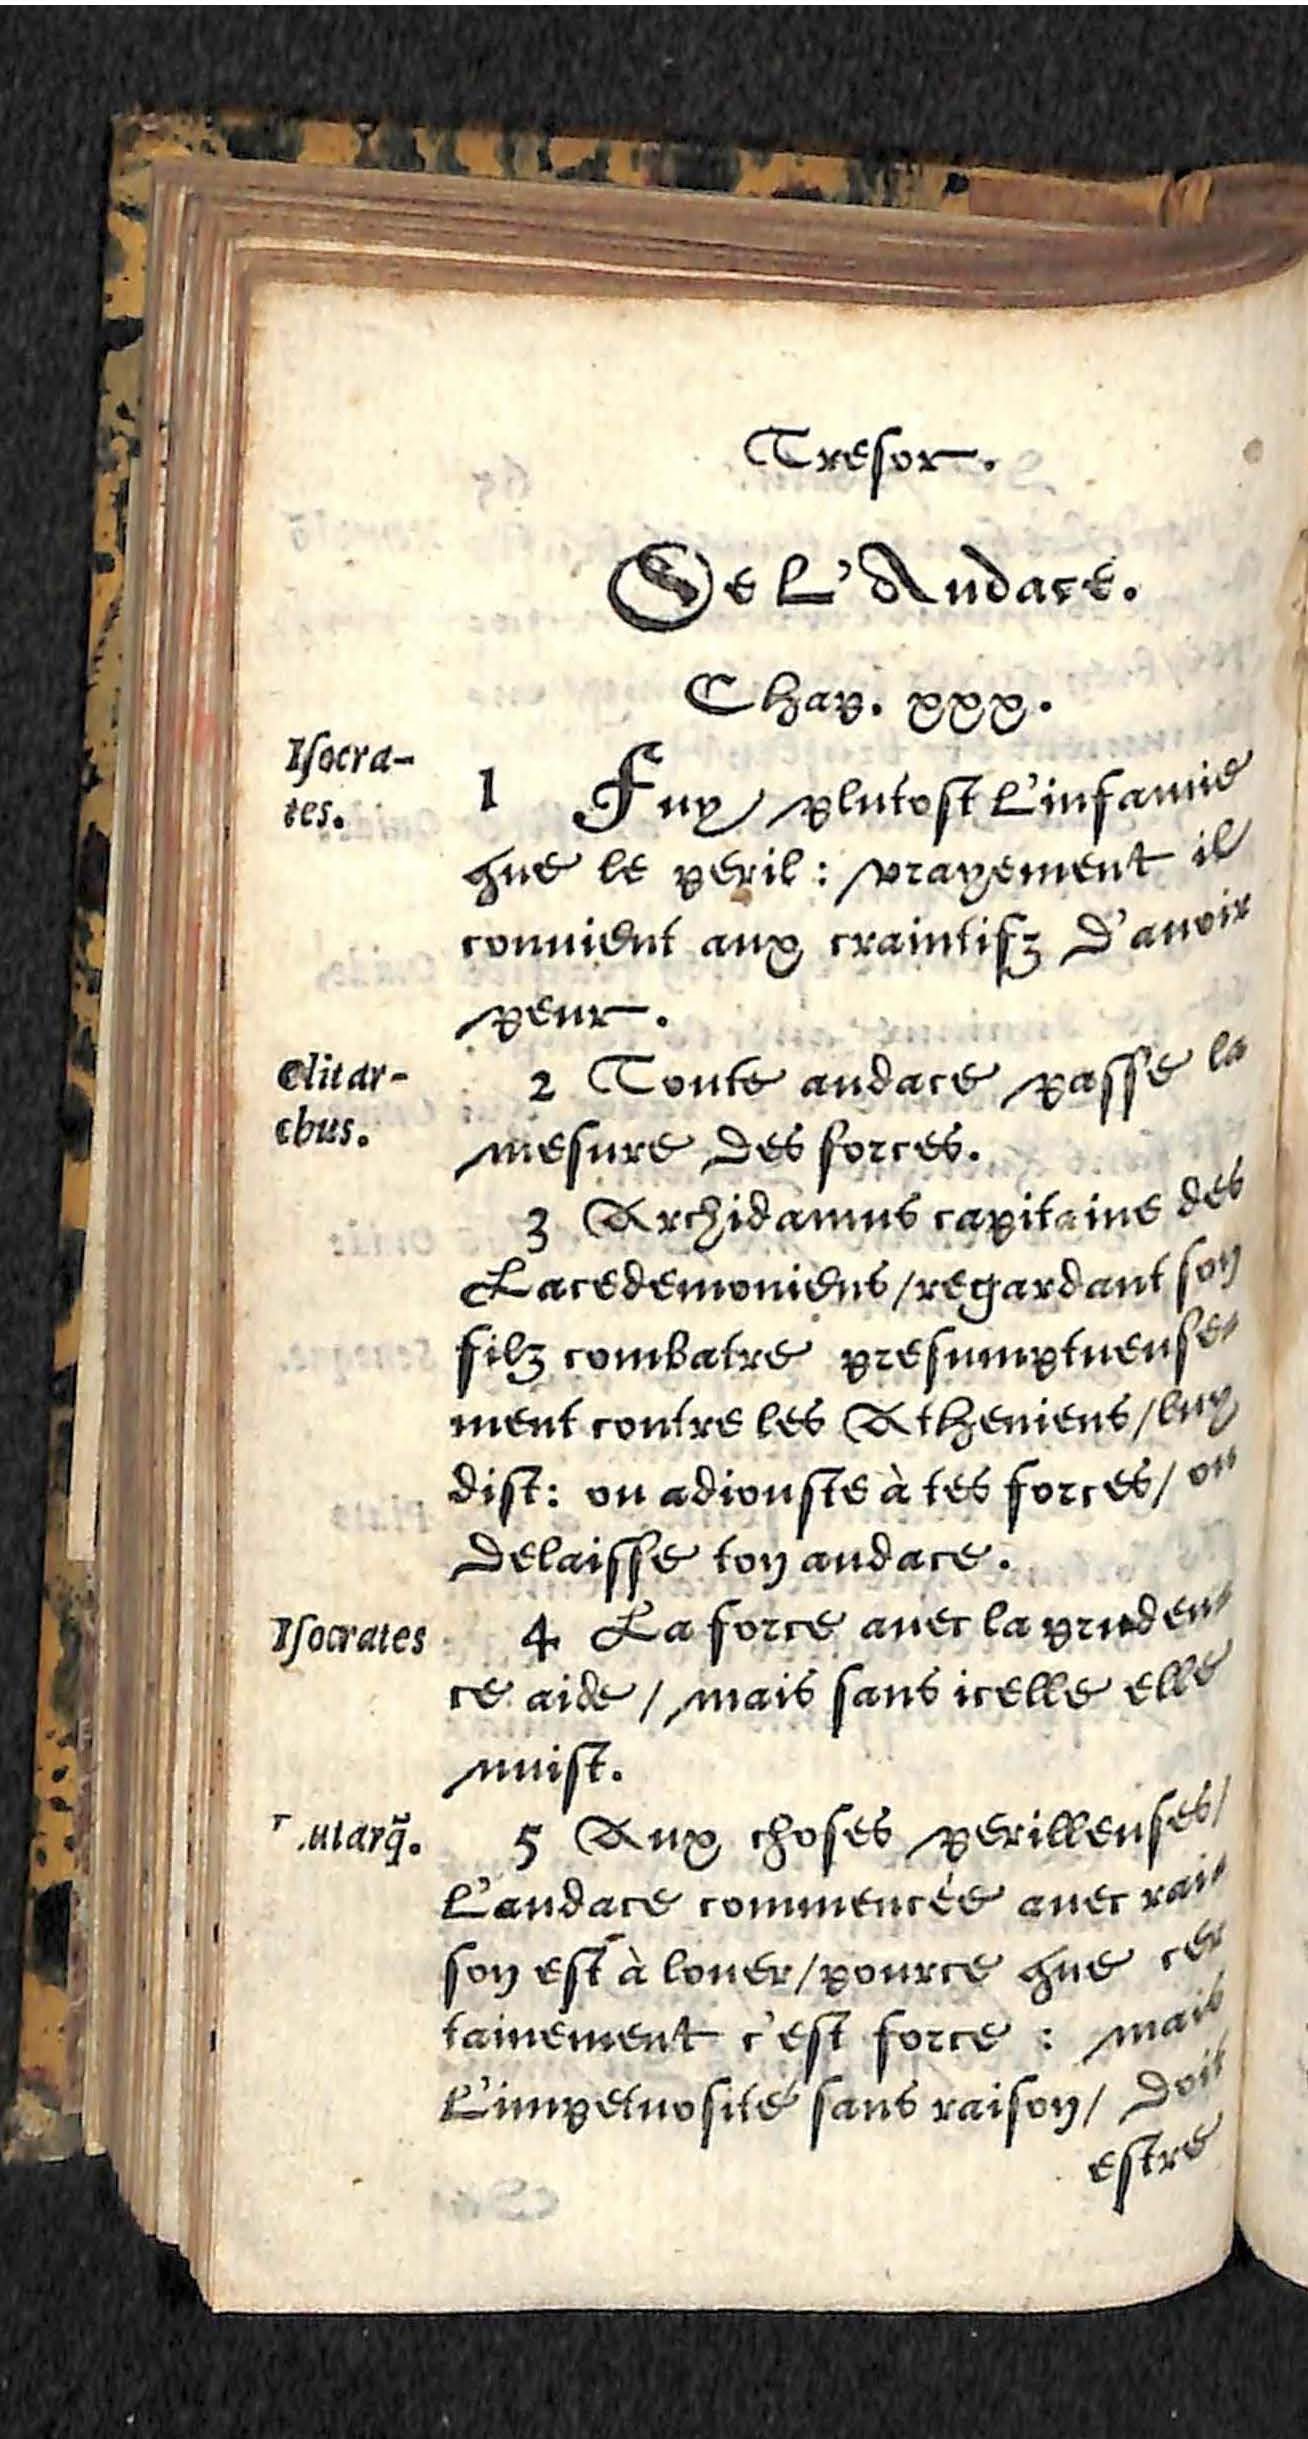 Tresor.
De L'Audace.
Chap. xxx.
Isocra-
tes.
1 Fuy plutost l'infamie
que le peril : vrayement il
conuient aux craintifz d'auoir
peur.
Clitar-
chus.
2 Toute audace passe la
mesure des forces.
3 Archidamus capitaine des
Lacedemoniens / regardant son
filz combatre presumptueuse-
ment contre les Atheniens / luy
dist: ou adiouste à tes forces / ou
delaisse ton audace.
Isocrates
4 La force auec la pruden-
ce aide / mais sans icelle elle
nuist.
.utarq̃.
5 Aux choses perilleuses /
L'audace commencée auec rai-
son est à louer / pource que cer
tainement c'est force : mais
L'impetuosité sans raison / doit
estre